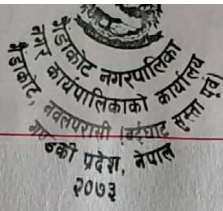 गैंडाकोट नगरपालिका
नगर कार्यपालिकाको कार्यालय
गैंडाकोट, नवलपरासी (बर्दघाट सुस्ता पूर्व)
गण्डकी प्रदेश, नेपाल
२०७३